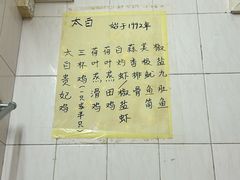 太白 始于1992年
太白贵妃鸡
三杯鸡(一只或半只)
荷叶蒸滑鸡
荷叶蒸田鸡
白灼虾椒盐虾
蒜香排骨
美极鱿鱼筒
椒盐九肚鱼